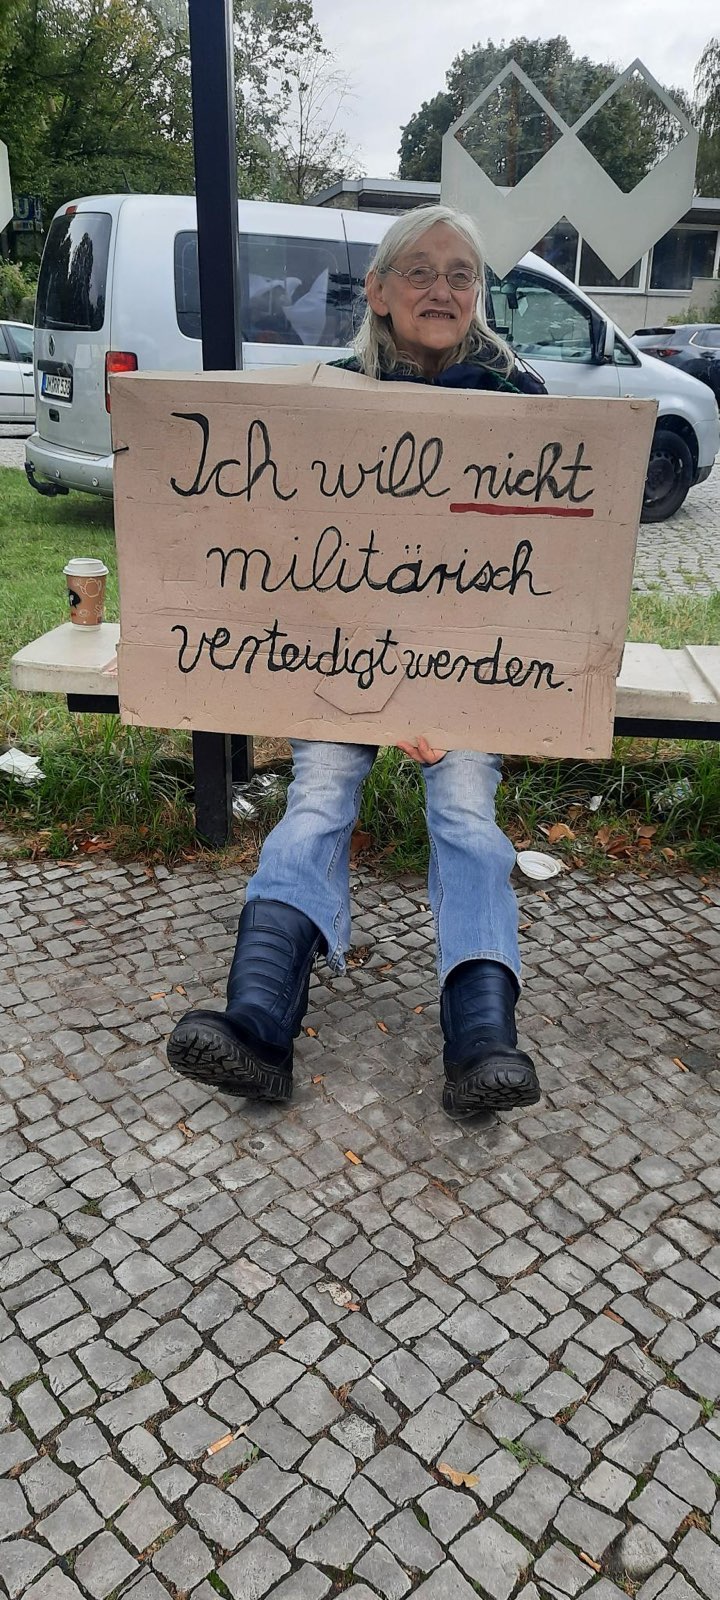 Ich will nicht
militärisch
verteidigt werden.